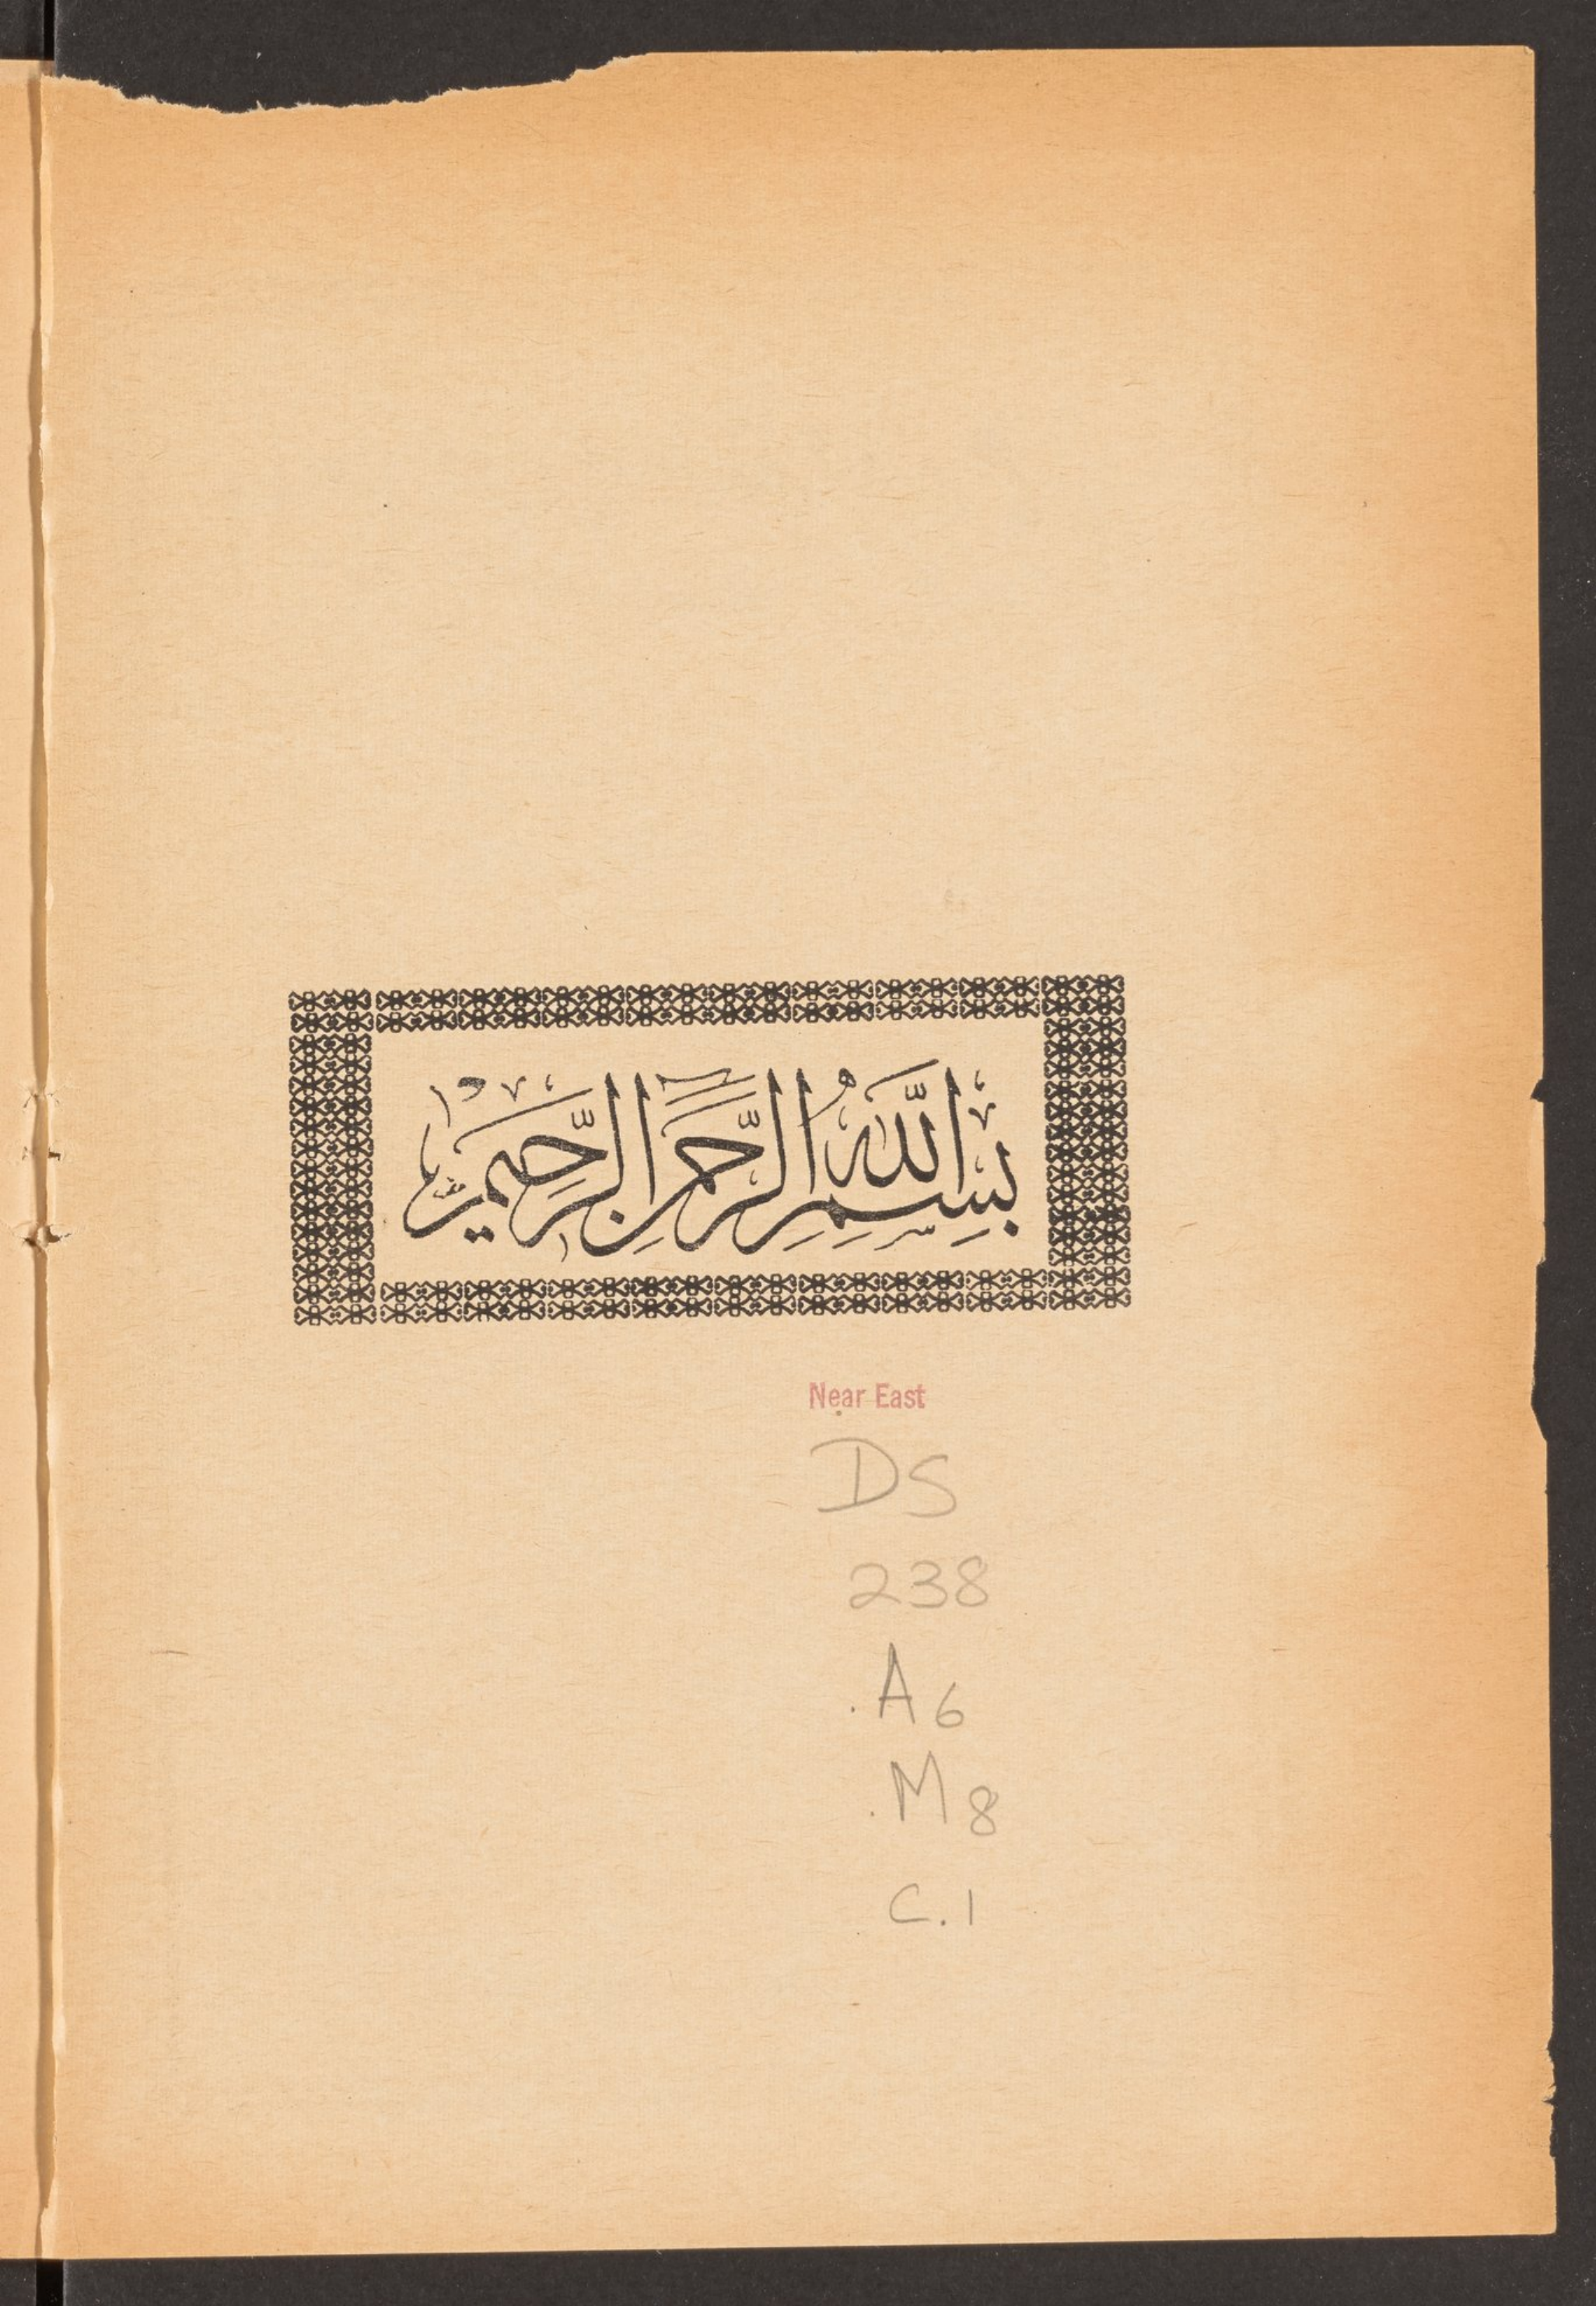 بِسْمِ اللَّهِ الرَّحْمَٰنِ الرَّحِيمِ
Near East
DS
238
.A6
.M8
C.1